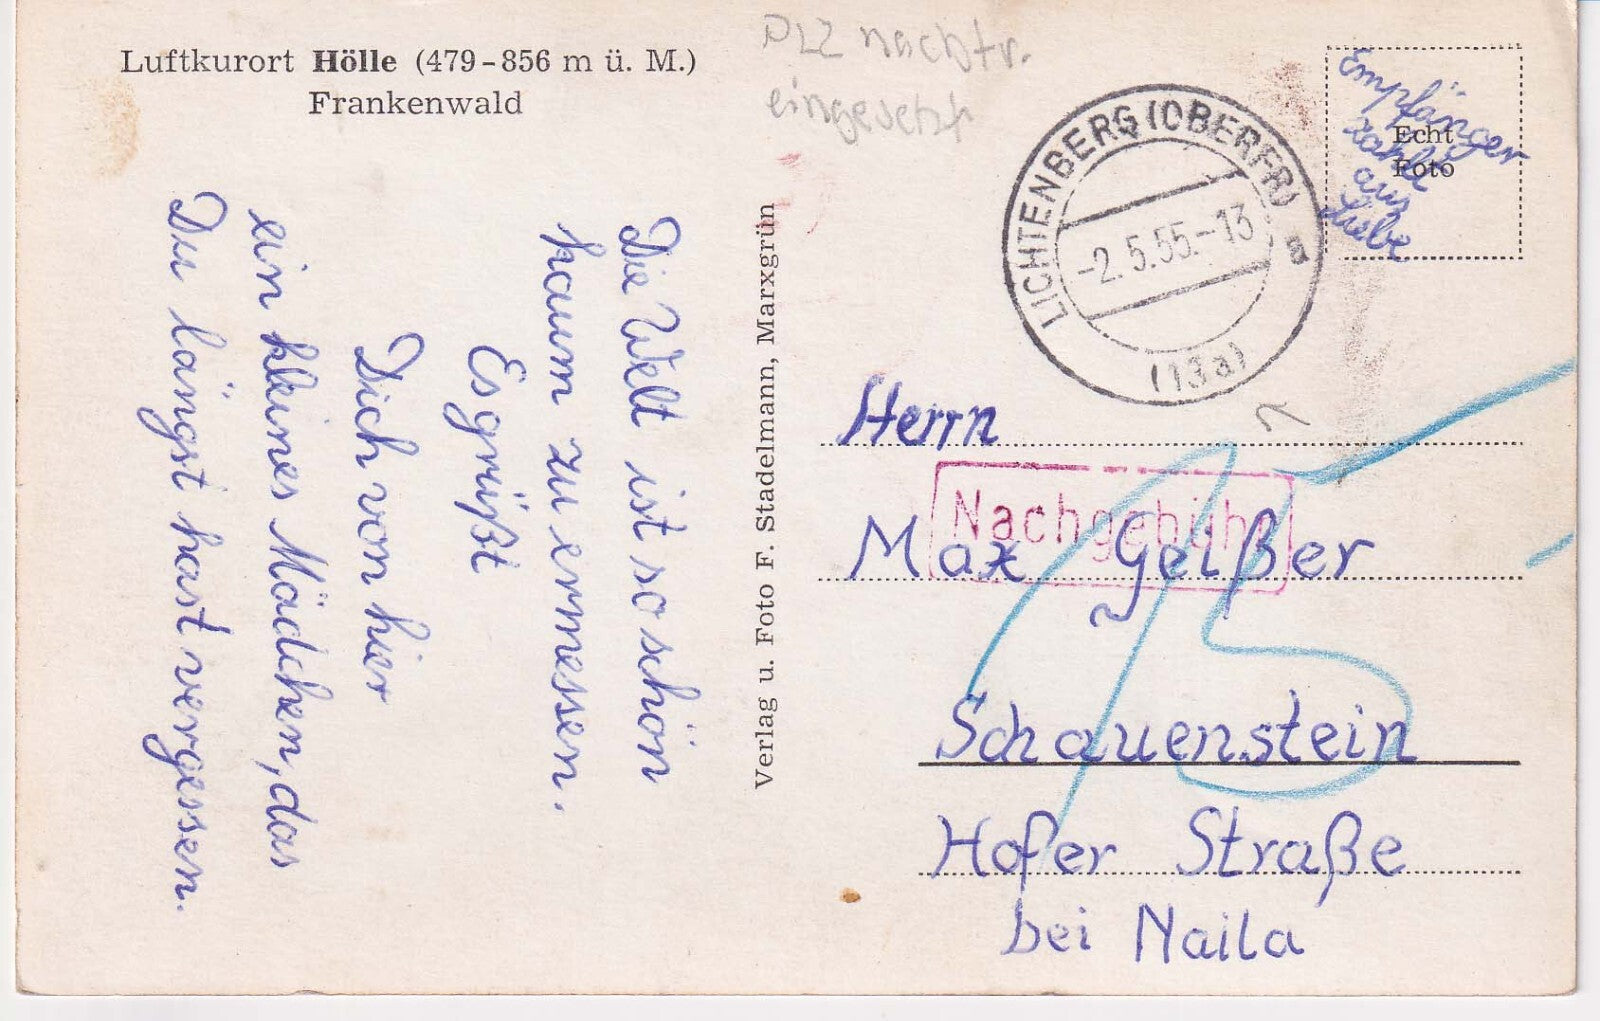 Luftkurort Hölle (479-856 m ü. M.)
Frankenwald
PLZ nachtr.
eingesetzt
Die Welt ist so schön
kaum zu ermessen.
Es grüßt
Dich von hier
ein kleines Mädchen, das
Du längst hast vergessen.
Verlag u. Foto F. Stadelmann, Marxgrün
LICHTENBERG (OBERFR)
-2.5.55.-13
a
(13a)
Echt
Foto
Empfänger
zahlt
aus
Liebe
Herrn
Nachgebühr
Max Geißer
15
Schauenstein
Hofer Straße
bei Naila